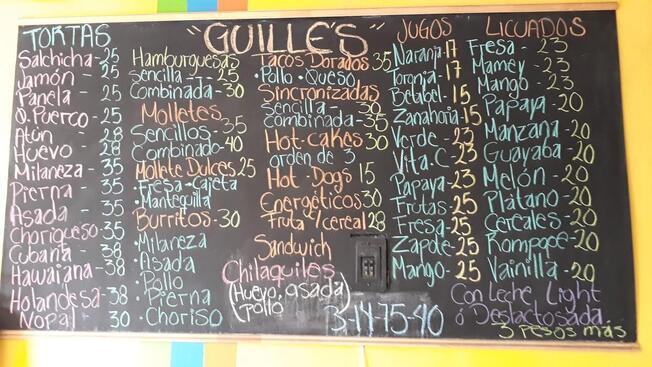 "GUILLE'S"
TORTAS
Salchicha - 25
Jamón - 25
Panela - 25
Q. Puerco - 25
Atún - 28
Huevo - 28
Milaneza - 35
Pierna - 35
Asada - 35
Choriqueso - 35
Cubana - 38
Hawaiana - 38
Holandesa - 38
Nopal - 30
Hamburguesas
Sencilla - 25
Combinada - 30
Molletes
Sencillos - 35
Combinado - 40
Mollete Dulces 25
• Fresa • Cajeta
• Mantequilla
Burritos - 30
• Milaneza
• Asada
• Pollo
• Pierna
• Choriso
Tacos Dorados 35
• Pollo • Queso
Sincronizadas
sencilla - 30
combinada - 35
Hot-cakes 30
orden de 3
Hot-Dogs 15
Energéticos 30
Fruta y/cereal 28
Sandwich
Chilaquiles
(Huevo, asada
pollo)
3-14-75-40
JUGOS
Naranja - 17
Toronja - 17
Betabel - 15
Zanahoria - 15
Verde - 23
Vita.C - 23
Papaya - 23
Frutas - 25
Fresa - 25
Zapote - 25
Mango - 25
LICUADOS
Fresa - 23
Mamey - 23
Mango - 23
Papaya - 20
Manzana - 20
Guayaba - 20
Melón - 20
Plátano - 20
Cereales - 20
Rompope - 20
Vainilla - 20
Con Leche Light
ó Deslactosada
3 pesos más